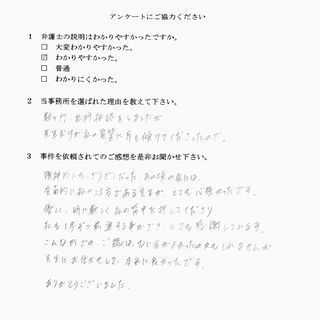 アンケートにご協力ください
1 弁護士の説明はわかりやすかったですか。
□ 大変わかりやすかった。
☑ わかりやすかった。
□ 普通
□ わかりにくかった。
2 当事務所を選ばれた理由を教えて下さい。
数ヶ所、出所相談をしましたが、
先生だけが私の要望に耳を傾けてくださったので。
3 事件を依頼されてのご感想を是非お聞かせ下さい。
精神的にもぎりぎりだった、あの時の私には、
全面的に私の味方である先生が、とても心強かったです。
優しく、時に厳しく私の背中を押してくださり
私も少しずつ前進する事ができ、とても感謝しています。
こんな形での、ご縁は、ない方がよかったのかもしれませんが
先生にお任せして、本当に良かったです。
ありがとうございました。